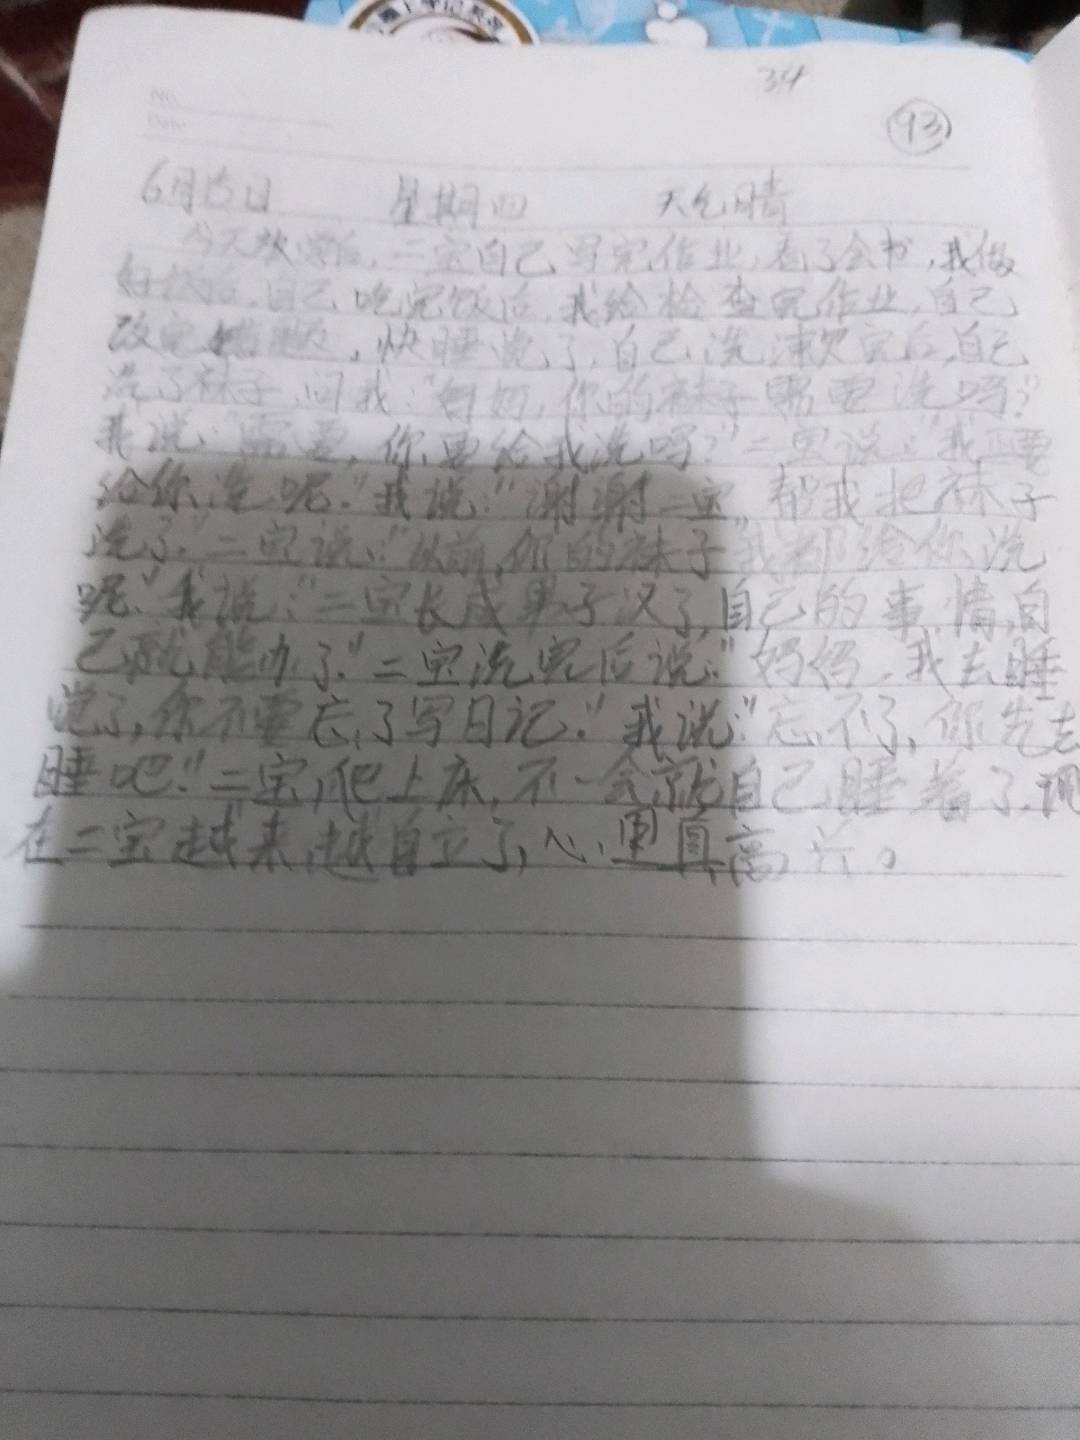 34
93
No.
Date
6月15日 星期四 天气晴
今天放学后,二宝自己写完作业,看了会书,我做
好饭后,自己吃完饭后,我给检查完作业,自己
改完错题,快睡觉了,自己洗漱完后,自己
洗了袜子,问我:"妈妈,你的袜子需要洗吗?"
我说:"需要,你要给我洗吗?"二宝说:"我要
给你洗呢."我说:"谢谢二宝,帮我把袜子
洗了."二宝说:"以前,你的袜子我都给你洗
呢."我说:"二宝长成男子汉了,自己的事情,自
己就能办了."二宝洗完后说:"妈妈,我去睡
觉了,你不要忘了写日记."我说:"忘不了,你先去
睡吧."二宝爬上床,不一会就自己睡着了.现
在二宝越来越自立了,心里真高兴。